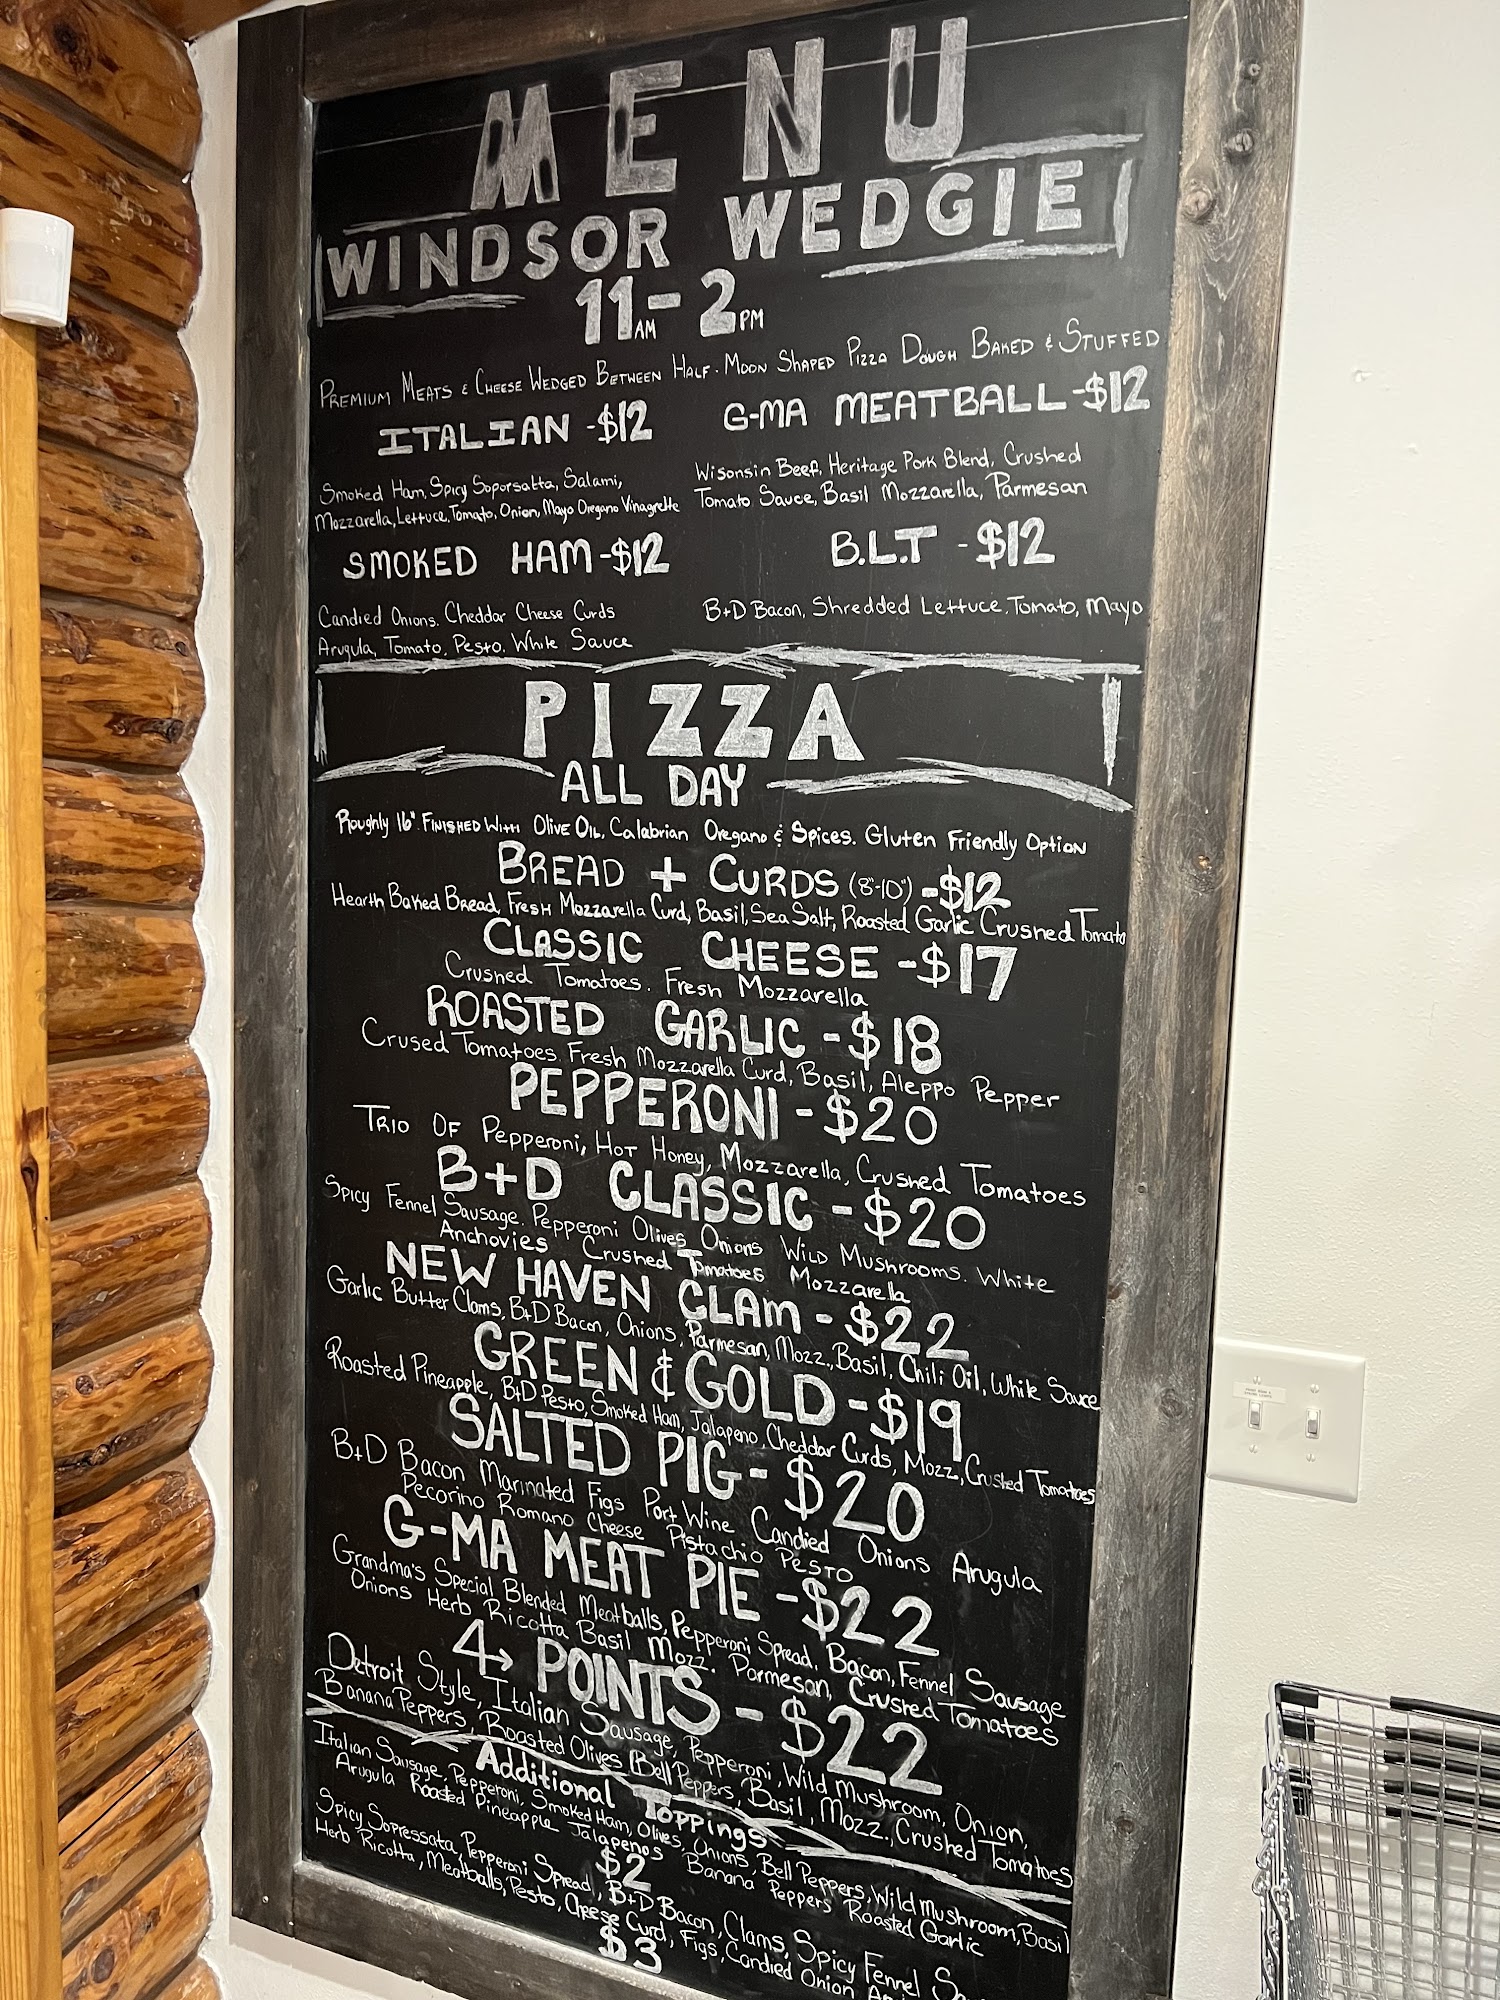 MENU
WINDSOR WEDGIE
11AM - 2PM
PREMIUM MEATS & CHEESE WEDGED BETWEEN HALF-MOON SHAPED PIZZA DOUGH BAKED & STUFFED
ITALIAN -$12
Smoked Ham, Spicy Soporsatta, Salami,
Mozzarella, Lettuce, Tomato, Onion, Mayo Oregano Vinagrette
G-MA MEATBALL -$12
Wisonsin Beef, Heritage Pork Blend, Crushed
Tomato Sauce, Basil Mozzarella, Parmesan
SMOKED HAM -$12
Candied Onions, Cheddar Cheese Curds
Arugula, Tomato, Pesto, White Sauce
B.L.T - $12
B+D Bacon, Shredded Lettuce, Tomato, Mayo
PIZZA
ALL DAY
Roughly 16" FINISHED WITH OLIVE OIL, Calabrian Oregano & Spices. Gluten Friendly Option
BREAD + CURDS (8"-10") -$12
Hearth Baked Bread, FRESH Mozzarella Curd, Basil, Sea Salt, Roasted Garlic Crushed Tomato
CLASSIC CHEESE -$17
Crushed Tomatoes. Fresh Mozzarella
ROASTED GARLIC -$18
Crused Tomatoes. Fresh Mozzarella Curd, Basil, Aleppo Pepper
PEPPERONI - $20
TRIO OF Pepperoni, HOT Honey, Mozzarella, Crushed Tomatoes
B+D CLASSIC - $20
Spicy Fennel Sausage. Pepperoni Olives Onions WILD MUSHROOMS. White
Anchovies Crushed Tomatoes Mozzarella
NEW HAVEN CLAM - $22
Garlic Butter Clams, B+D Bacon, Onions, Parmesan, Mozz., Basil, Chili Oil, White Sauce
GREEN & GOLD -$19
Roasted Pineapple, B+D Pesto, Smoked Ham, Jalapeno, Cheddar Curds, Mozz, Crushed Tomatoes
SALTED PIG- $20
B+D Bacon Marinated Figs Port Wine Candied Onions Arugula
Pecorino Romano Cheese Pistachio PESTO
G-MA MEAT PIE -$22
Grandma's Special Blended Meatballs, Pepperoni Spread, Bacon, Fennel Sausage
Onions Herb Ricotta Basil Mozz. Parmesan, Crushed Tomatoes
4 POINTS - $22
Detroit Style, Italian Sausage, Pepperoni, Wild Mushroom, Onion,
Banana Peppers, Roasted Olives Bell Peppers, Basil, Mozz., Crushed Tomatoes
Additional Toppings
Italian Sausage, Pepperoni, Smoked Ham, Olives, Onions, Bell Peppers, Wild Mushroom, Basil
Arugula Roasted Pineapple Jalapenos Banana Peppers Roasted Garlic
$2
Spicy Sopressata, Pepperoni Spread, B+D Bacon, Clams, Spicy Fennel
Herb Ricotta, Meatballs, Pesto, Cheese Curd, Figs, Candied Onion
$3